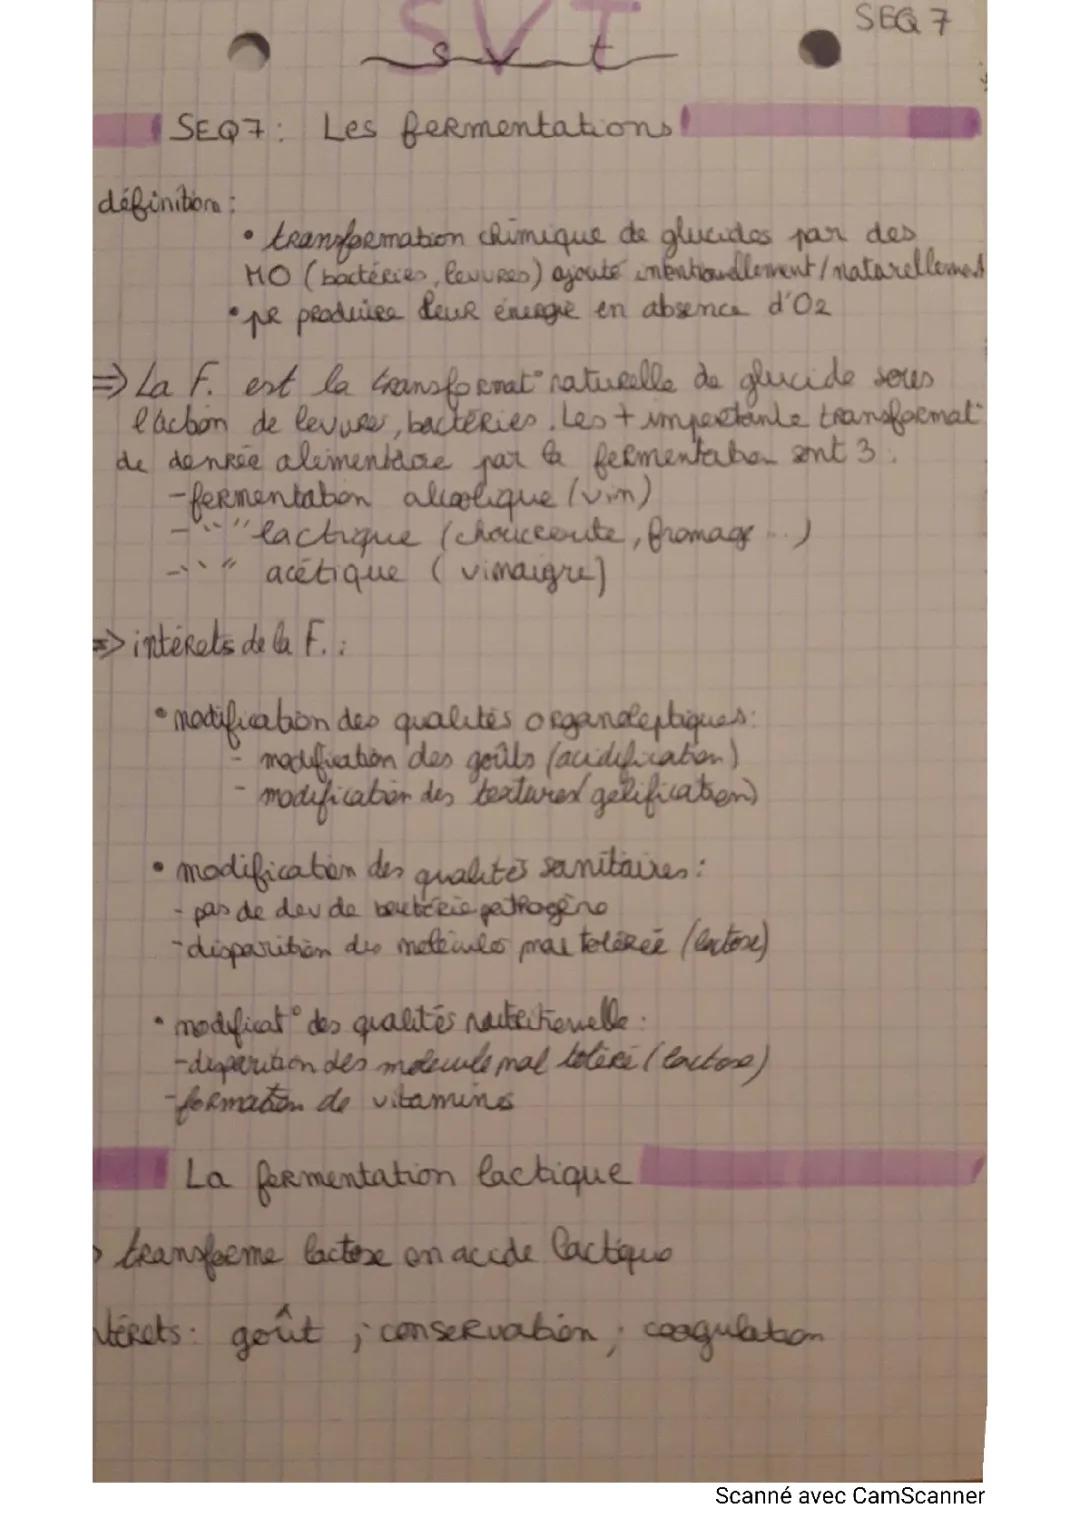 SEQ 7
SVT
svt
SEQ7: Les fermentations
définition:
• transformation chimique de glucides par des
MO (bactéries, levures) ajouté intentionellement/naturellement
• pr produire leur énergie en absence d'O2
=> La F. est la transformat° naturelle de glucide sous
l'action de levures, bactéries. Les + importante transformat°
de denrée alimentaire par la fermentation sont 3:
- fermentation alcoolique (vin)
- " lactique (choucroute, fromage ...)
- " acétique (vinaigre)
=> intérets de la F.:
• modification des qualités organoleptiques:
- modification des goûts (acidification)
- modification des textures (gélification)
• modification des qualités sanitaires:
- pas de dev de bactérie pathogène
- disparition des molécules mal tolérée (lactose)
• modificat° des qualités nutritionelle:
- disparition des molecule mal toléré (lactose)
- formation de vitamines
La fermentation lactique
> transforme lactose en acide lactique
térets: goût ; conservation ; coagulation
Scanné avec CamScanner